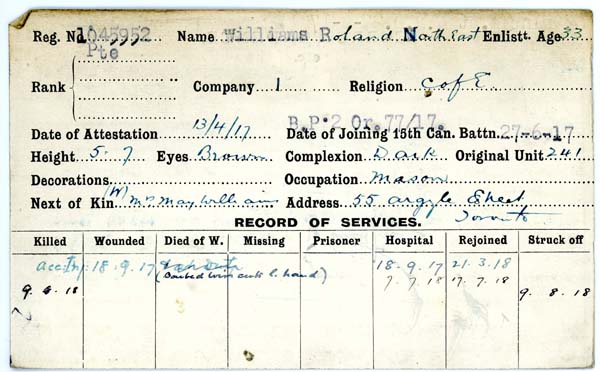 Reg. No. 1045952 Name Williams Roland North East Enlistt. Age 33
Pte
Rank Company 1 Religion C of E.
B.P. 2 Or. 77/17.
Date of Attestation 13/4/17 Date of Joining 15th Can. Battn. 27-6-17
Height 5. 7 Eyes Brown Complexion Dark Original Unit 241
Decorations Occupation Mason
Next of Kin (W) Mrs May Williams Address 55 Argyle Street
Toronto
RECORD OF SERVICES.
Killed Wounded Died of W. Missing Prisoner Hospital Rejoined Struck off
Acc. Inj. 18.9.17 (Barbed wire cut l. hand) 18.9.17 21.3.18
7.7.18 17.7.18
9.8.18 9.8.18